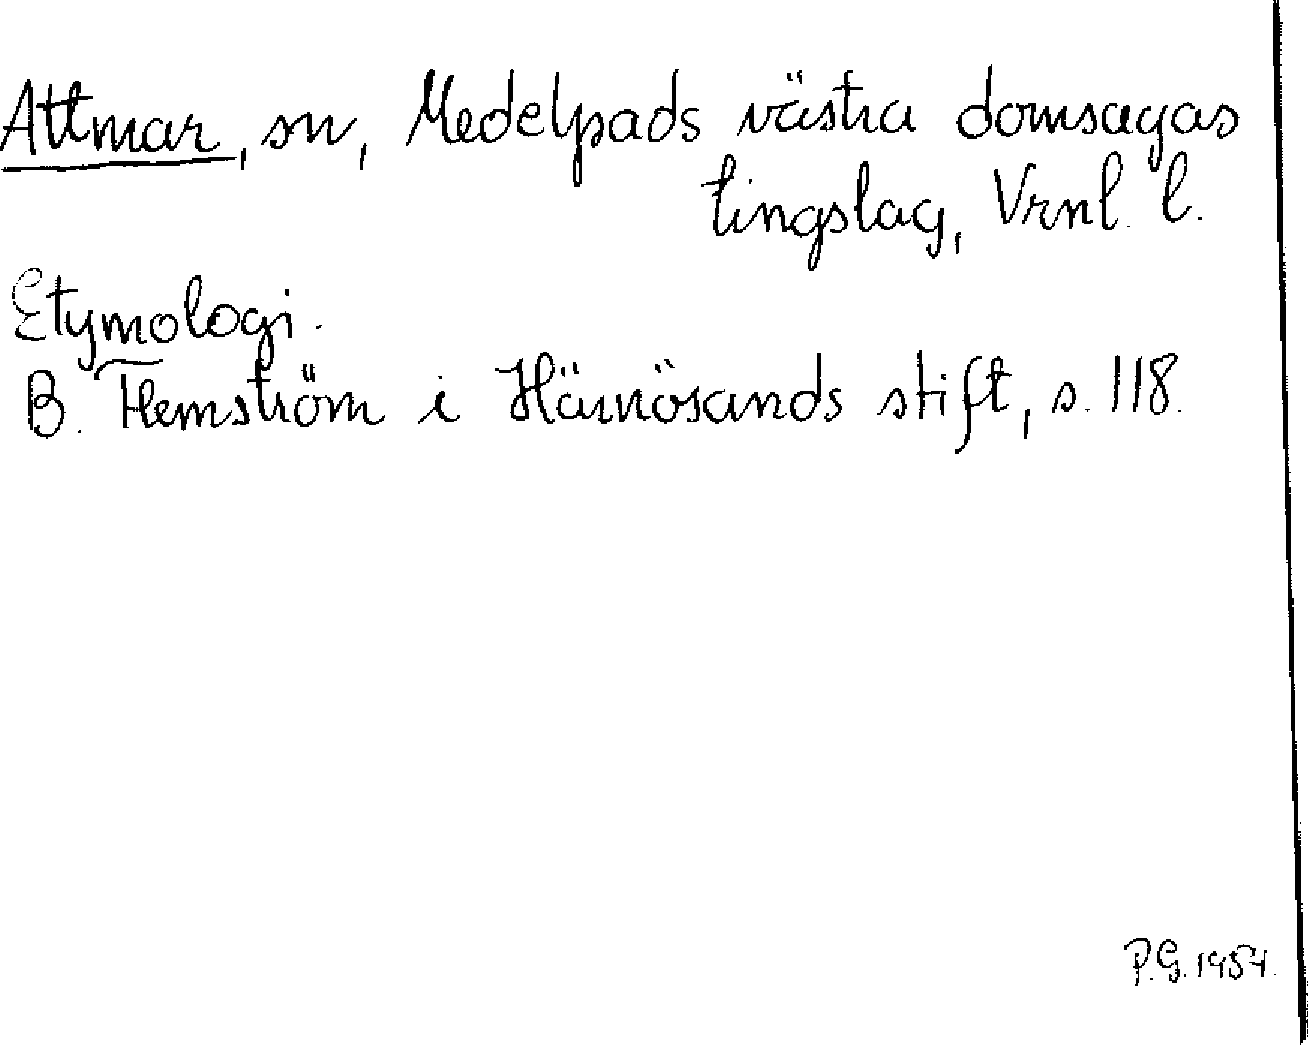 Attmar, sn, Medelpads västra domsagas
tingslag, Vrnl. l.
Etymologi.
B. Flemström i Härnösands stift, s. 118.
P.G. 1954.